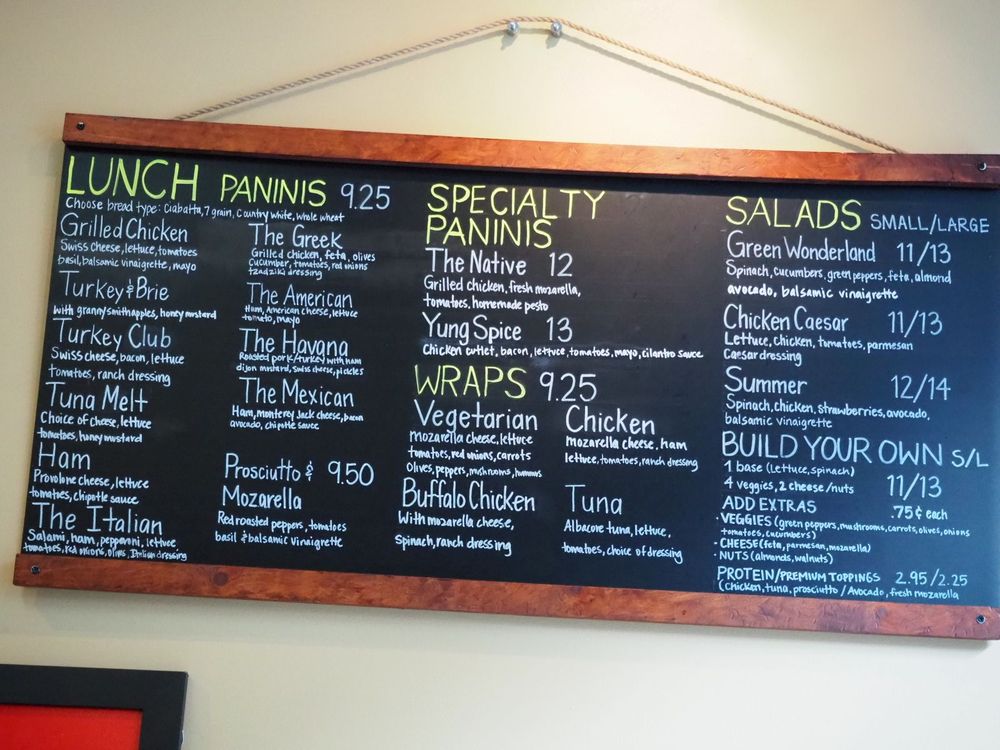 LUNCH PANINIS 9.25
Choose bread type: Ciabatta, 7 grain, Country white, whole wheat
Grilled Chicken
Swiss cheese, lettuce, tomatoes
basil, balsamic vinaigrette, mayo
Turkey & Brie
with granny smith apples, honey mustard
Turkey Club
Swiss cheese, bacon, lettuce
tomatoes, ranch dressing
Tuna Melt
Choice of cheese, lettuce
tomatoes, honey mustard
Ham
Provolone cheese, lettuce
tomatoes, chipotle sauce
The Italian
Salami, ham, pepperoni, lettuce
tomatoes, red onions, olives, Italian dressing
The Greek
Grilled chicken, feta, olives
Cucumber, tomatoes, red onions
tzadziki dressing
The American
Ham, American cheese, lettuce
tomato, mayo
The Havana
Roasted pork/turkey with ham
dijon mustard, swiss cheese, pickles
The Mexican
Ham, monterey Jack cheese, bacon
avocado, chipotle sauce
Prosciutto & 9.50
Mozarella
Red roasted peppers, tomatoes
basil & balsamic vinaigrette
SPECIALTY
PANINIS
The Native 12
Grilled chicken, fresh mozarella,
tomatoes, homemade pesto
Yung Spice 13
Chicken cutlet, bacon, lettuce, tomatoes, mayo, cilantro sauce
WRAPS 9.25
Vegetarian
mozarella cheese, lettuce
tomatoes, red onions, carrots
Olives, peppers, mushrooms, hummus
Buffalo Chicken
With mozarella cheese,
Spinach, ranch dressing
Chicken
mozarella cheese, ham
lettuce, tomatoes, ranch dressing
Tuna
Albacore tuna, lettuce,
tomatoes, choice of dressing
SALADS SMALL/LARGE
Green Wonderland 11/13
Spinach, cucumbers, green peppers, feta, almond
avocado, balsamic vinaigrette
Chicken Caesar 11/13
Lettuce, chicken, tomatoes, parmesan
Caesar dressing
Summer 12/14
Spinach, chicken, strawberries, avocado,
balsamic vinaigrette
BUILD YOUR OWN S/L
1 base (lettuce, spinach)
4 veggies, 2 cheese/nuts 11/13
ADD EXTRAS .75¢ each
• VEGGIES (green peppers, mushrooms, carrots, olives, onions
tomatoes, cucumbers)
• CHEESE (feta, parmesan, mozarella)
• NUTS (almonds, walnuts)
PROTEIN/PREMIUM TOPPINGS 2.95/2.25
(Chicken, tuna, prosciutto / Avocado, fresh mozarella